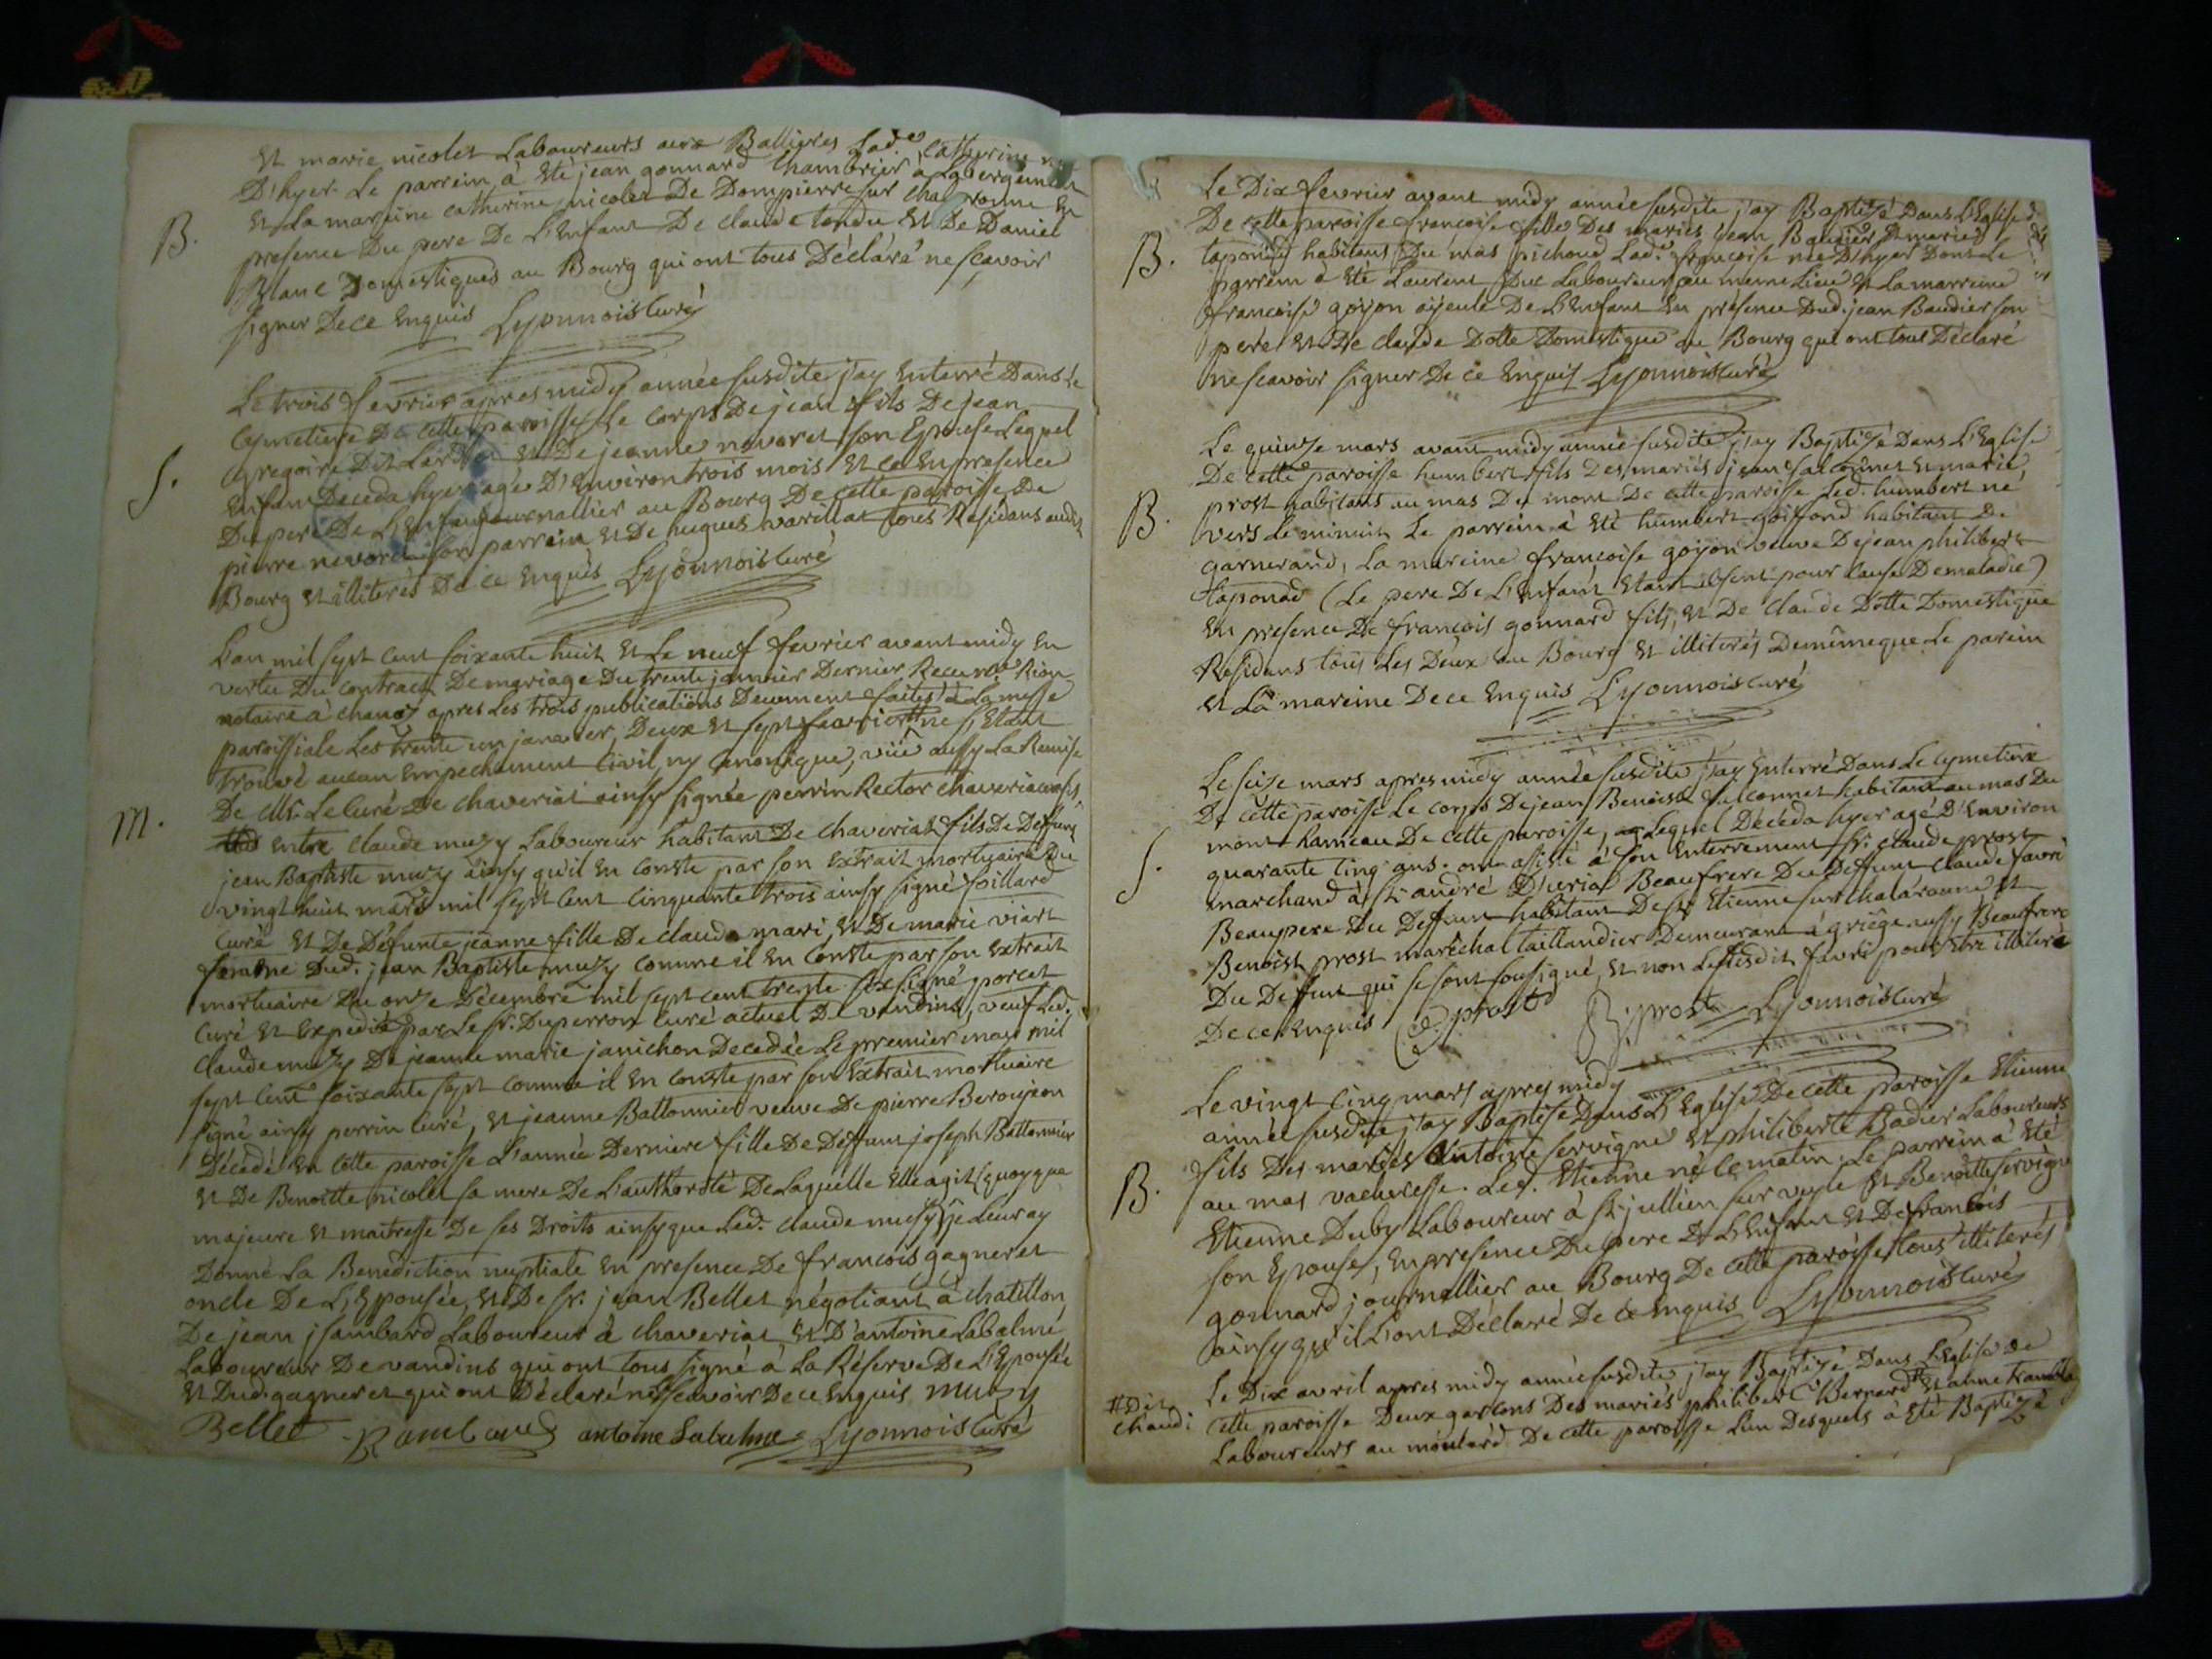 Et marie nicolet Laboureurs aux Ballieres Lad.e Catherine
D'hyer Le parrein, à Eté jean gonnard Chambrier à Lgbergement
B.
Et La mareine Catherine nicolet De Dompierre sur Chalaronne En
presence Du pere De L'Enfant De claude tondu Et De Daniel
Blanc Domestiques au Bourg qui ont tous Déclaré ne scavoir
signer De ce Enquis Lyonnois Curé
Le trois fevrier apres midy année susdite j'ay Enterré Dans Le
Cymetiere De cette paroisse Le Corps De jean fils De jean
gregoire Dit Et De jeanne nevoret son Epouse Lequel
S.
Enfant Deceda hyer agé D'Environ trois mois Et ce En presence
Du pere De L'Enfant journallier au Bourg De cette paroisse, De
pierre nevoret son parrein Et De hugues varillat tous Residans audit
Bourg Et illiterés De ce Enquis Lyonnois Curé
L'an mil sept cent soixante huit Et Le neuf fevrier avant midy En
vertu Du contract De mariage Du trente janvier Dernier Recu m.e Rion
notaire à chanoz apres Les trois publications Deuement faites à La messe
paroissiale Les trente un janvier, Deux Et sept fevrier ne s'Etant
trouvé aucun Empechement Civil, ny Canonique, vüe aussy La Remise
De Mr. Le Curé De chaveriat ainsy signée perrin Rector chaveriacensis
M.
Entre claude muzy Laboureur habitant De Chaveriat fils De Deffunt
jean Baptiste muzy ainsy qu'il En Conste par son Extrait mortuaire Du
vingt huit mars mil sept cent Cinquante trois ainsy signé foillard
Curé Et De Defunte jeanne fille De claude mari, Et De marie viart
femme Dud. jean Baptiste muzy comme il En Conste par son Extrait
mortuaire Du onze Décembre mil sept cent trente six signé porcet
Curé Et Expedié par Le Sr. Duperron Curé actuel De vandins, veuf Led.
Claude muzy De jeanne marie janichon Decedée Le premier may mil
sept Cent soixante sept comme il En Conste par son Extrait mortuaire
signé ainsy perrin Curé, Et jeanne Battonnier veuve De pierre Beroujon
Décédé En Cette paroisse L'année Derniere fille De Deffunt joseph Battonnier
Et De Benoitte nicolet sa mere De L'authorité De Laquelle Elle agit (quoyque
majeure Et maitresse De ses Droits ainsy que Led. claude muzy) je Leur ay
Donné La Benediction nuptiale En presence De francois gagneret
oncle De L'Epousée, Et De Sr. jean Bellet négotiant à chatillon
De jean jsambard Laboureur à Chaveriat Et D'antoine Labalme
Laboureur De vandins qui ont tous signé à La Réserve De L'Epousée
Et Dud. gagneret qui ont Déclaré ne scavoir De ce Enquis muzy
Bellet antoine Labalme Lyonnois Curé
Le Dix fevrier avant midy année susdite j'ay Baptizé Dans L'Eglise
De cette paroisse francoise fille Des mariés jean Baudier Et marie
B.
taponnd habitans Du mas pichoud Lad.e francoise née D'hyer Dont Le
parrein a Eté Laurent Duc Laboureur au meme Lieu Et La marreine
francoise goyon ayeule De L'Enfant En presence Dud. jean Baudier son
pere Et De claude Dotte Domestique au Bourg qui ont tous Déclaré
ne scavoir signer De ce Enquis Lyonnois Curé
Le quinze mars avant midy année susdite j'ay Baptizé Dans L'Eglise
De cette paroisse humbert fils Des mariés jean falconnet Et marie
prost habitans au mas Du mont De cette paroisse Led. humbert né
B.
vers Le minuit Le parrein à Eté humbert goiffond habitant De
garnerand, La mareine francoise goyon veuve De jean philibert
taponnd (Le pere De L'Enfant Etant absent pour Cause De maladie)
En presence De francois gonnard fils, Et De claude Dotte Domestique
Residans tous Les Deux au Bourg Et illiterés De même que Le parein
Et La mareine De ce Enquis Lyonnois Curé
Le seize mars apres midy année susdite j'ay Enterré Dans Le Cymetiere
De cette paroisse Le corps De jean Benoist falconnet habitant au mas Du
mont hameau De cette paroisse, Lequel Deceda hyer agé D'Environ
S.
quarante cinq ans. ont assisté à son Enterrement Sr. claude prost
marchand à St. andré D'huriat Beaufrere Du Deffunt claude favri
Beaupere Du Deffunt habitant De St. Etienne sur Chalaronne Et
Benoist prost maréchal taillandier Demeurant à griège aussy Beaufrere
Du Deffunt qui se sont sousigné, Et non Le susdit favri pour Etre illiteré
De ce Enquis C. prost B. prost Lyonnois Curé
Le vingt Cinq mars apres midy
année susdite j'ay Baptisé Dans L'Eglise De cette paroisse Etienne
fils Des mariés Antoine servigne Et philiberte Badier Laboureurs
B.
au mas vacheresse. Led. Etienne né Ce matin. Le parrein à Eté
Etienne Duby Laboureur à St. jullien sur veyle Et Benoitte servigne
son Epouse, En presence Du pere De L'Enfant Et De francois
gonnard journallier au Bourg De cette paroisse tous illiterés
ainsy qu'il L'ont Déclaré De ce Enquis Lyonnois Curé
Le Dix avril apres midy année susdite j'ay Baptizé Dans L'Eglise De
# Dit
Chaud:
cette paroisse Deux garcons Des mariés philibert Bernard # Et anne
Laboureurs au moulard De cette paroisse L'un Desquels à Eté Baptizé